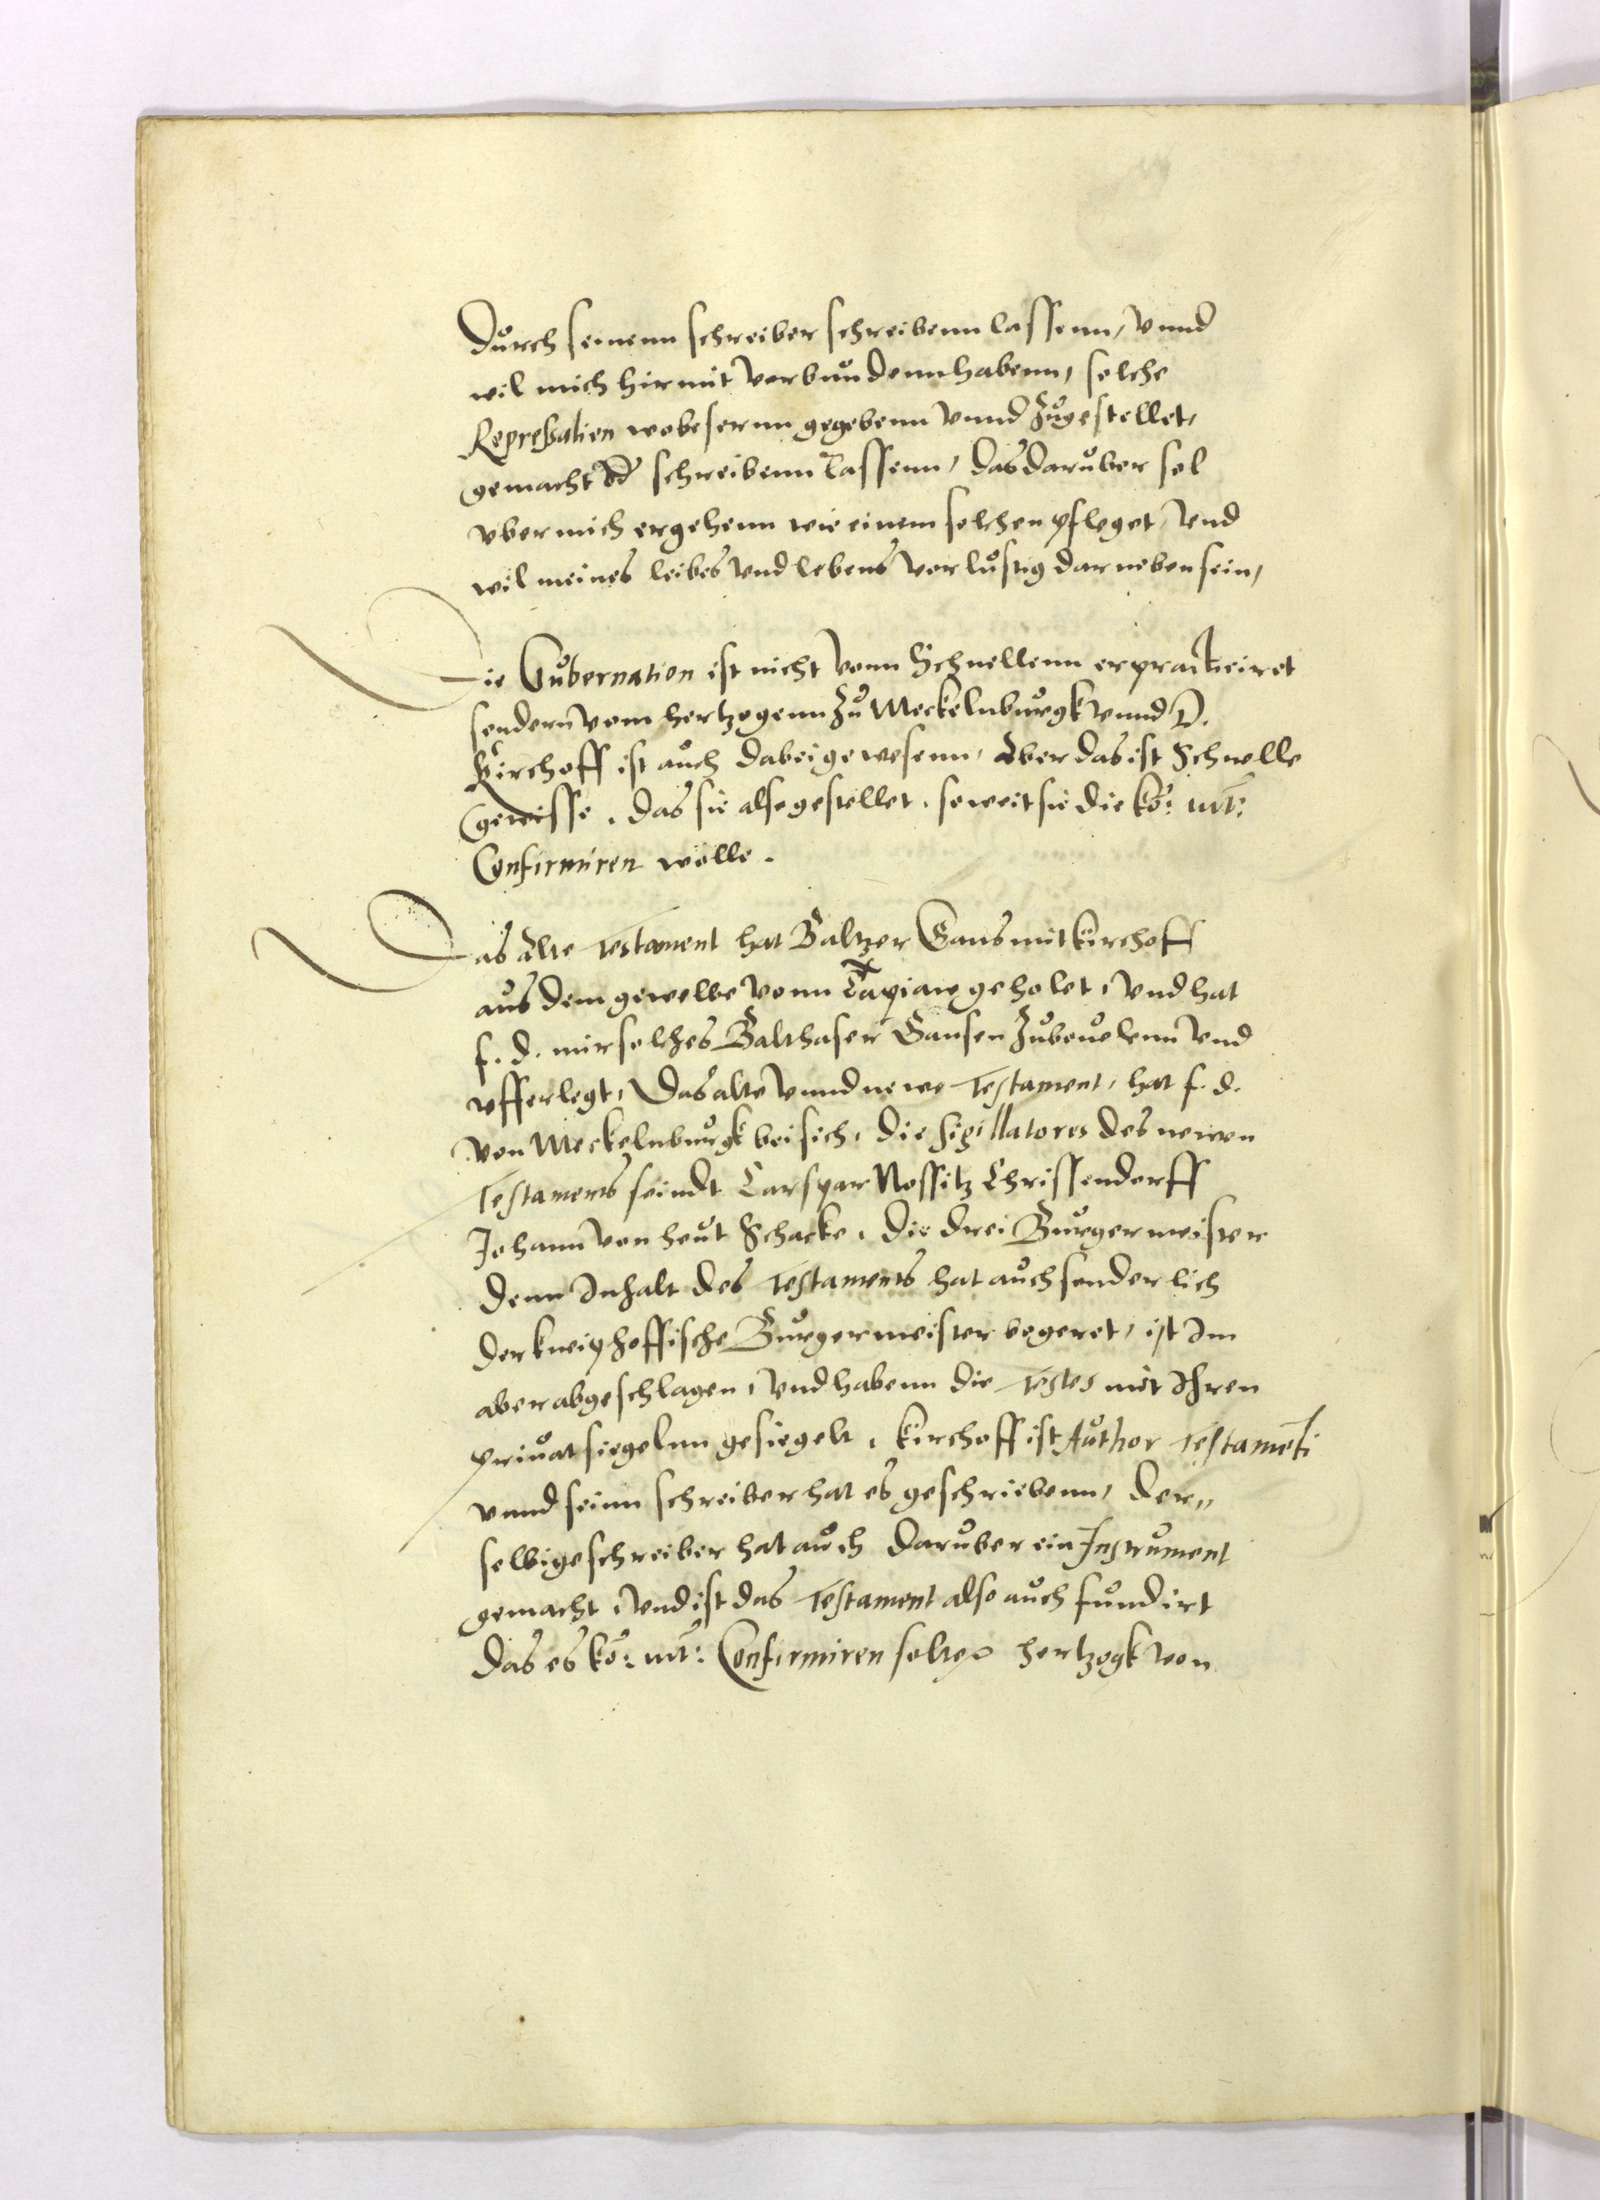 Durch seinenn schreiber schreibenn lassenn, vnnd
wil mich hirmit verbundenn habenn, solche
Repressalien wobesernn gegebenn vnnd zugestellet,
gemacht od schreibenn lassenn, das daruber sol
vber mich ergehenn wie einem solchen pfleget, vnd
wil meines leibes vnd lebens verlustig darneben sein,
Die Gubernation ist nicht vonn Schnellenn erpracticiret
sondern vom hertzogenn zu Meckelnburgk vnnd D.
Kirchoff ist auch dabei gewesenn, Aber das ist Schnelle
gewisse, das sie also gestellet, so weit sie die kö: mt:
Confirmiren wolle.
Das alte Testament hat Baltzer Gans mit Kirchoff
aus dem gewelbe vonn Tapiaw geholet, vnd hat
f. d. mir solches Balthaser Gansen zubeuelenn vnd
vfferlegt, Das alte vnnd newe Testament, hat f. d.
von Meckelnburgk bei sich, die sigillatores des newen
Testaments seindt Carspar Nossitz Chrissendorff
Johann von heut Schacke, die drei Burgermeister
denn Inhalt des Testaments hat auch sonderlich
der kneiphoffische Burgermeister begeret, ist Im
aber abgeschlagen, vnd habenn die Testes mit Ihren
priuat siegelnn gesiegelt, Kirchoff ist Author Testamenti
vnnd seinn schreiber hat es geschriebenn, der„
selbige schreiber hat auch daruber ein Instrument
gemacht, vnd ist das Testament also auch fundirt
das es kö: mt: Confirmiren solte, hertzogk von